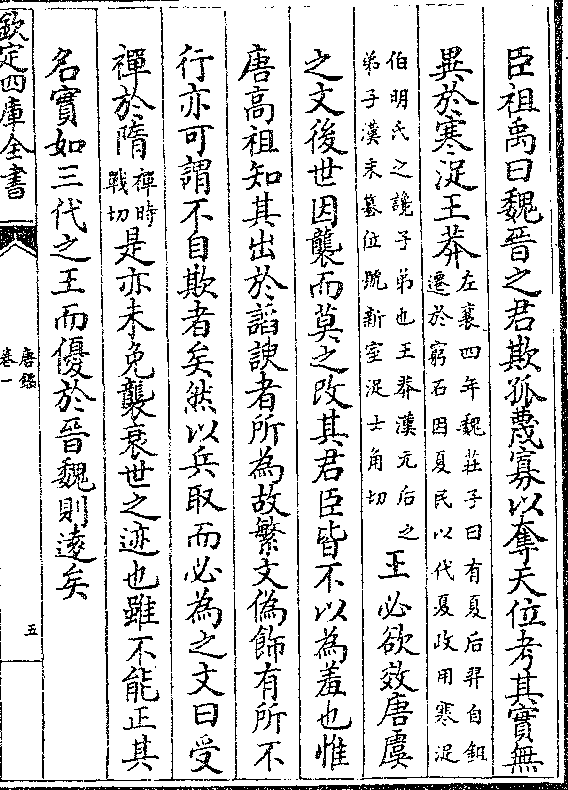 臣祖禹曰魏晉之君欺孤蔑寡以奪天位考其實無
異於寒浞王莽左襄四年魏莊子曰有夏后羿自鉏遷於窮石因夏民以代夏政用寒浞
伯明氏之讒子弟也王莽漢元后之弟子漢末簒位號新室浞士角切王必欲效唐虞
之文後世因襲而莫之改其君臣皆不以為羞也惟
唐高祖知其出於謟諛者所為故繁文偽飾有所不
行亦可謂不自欺者矣然以兵取而必為之文曰受
禪於隋禪時戰切是亦未免襲衰世之迹也雖不能正其
名實如三代之王而優於晉魏則遠矣
欽定四庫全書
唐鑑
卷一
五